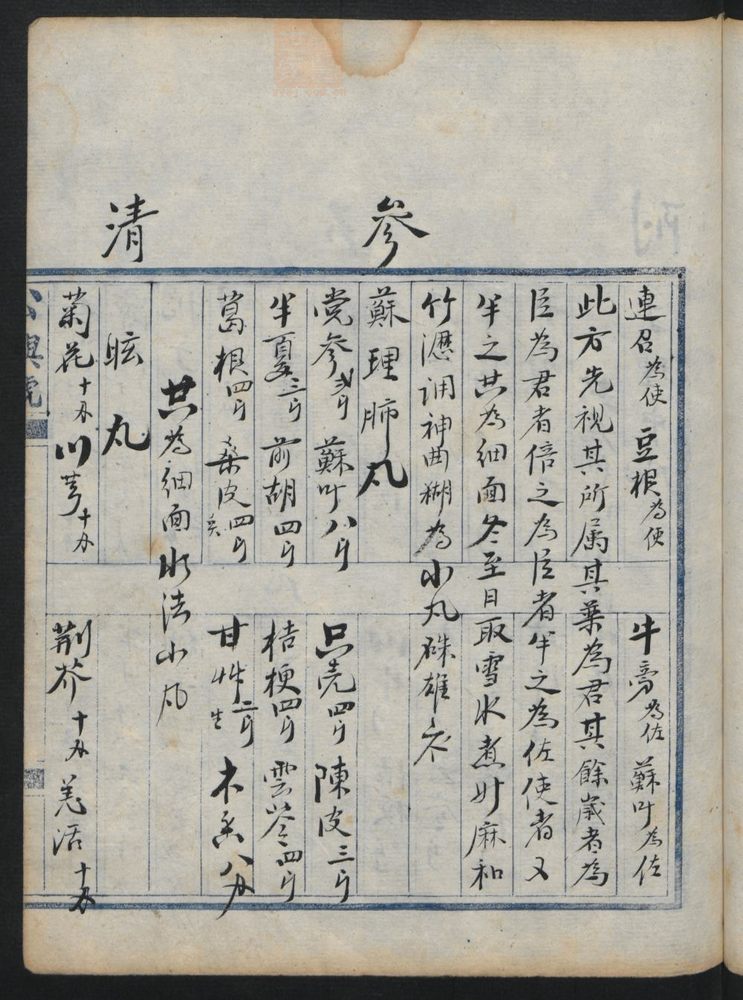 連召為使 豆根為使 牛旁為佐 蘇叶為佐
此方先視其所属其藥為君其餘歲者為
臣為君者倍之為臣者半之為佐使者又
半之共為細面冬至日取雪水煮升麻和
竹瀝调神曲糊為小丸硃雄衣
參
蘇理肺丸
党參 蘇叶八斤 只壳四斤 陳皮三斤
半夏三斤 前胡四斤 桔梗四斤 雲苓四斤
葛根四斤 桑皮四斤炙 甘艸二斤生 木香八两
共為細面水法小丸
清
眩丸
菊花十两 川芎十两 荆芥十两 羌活十两